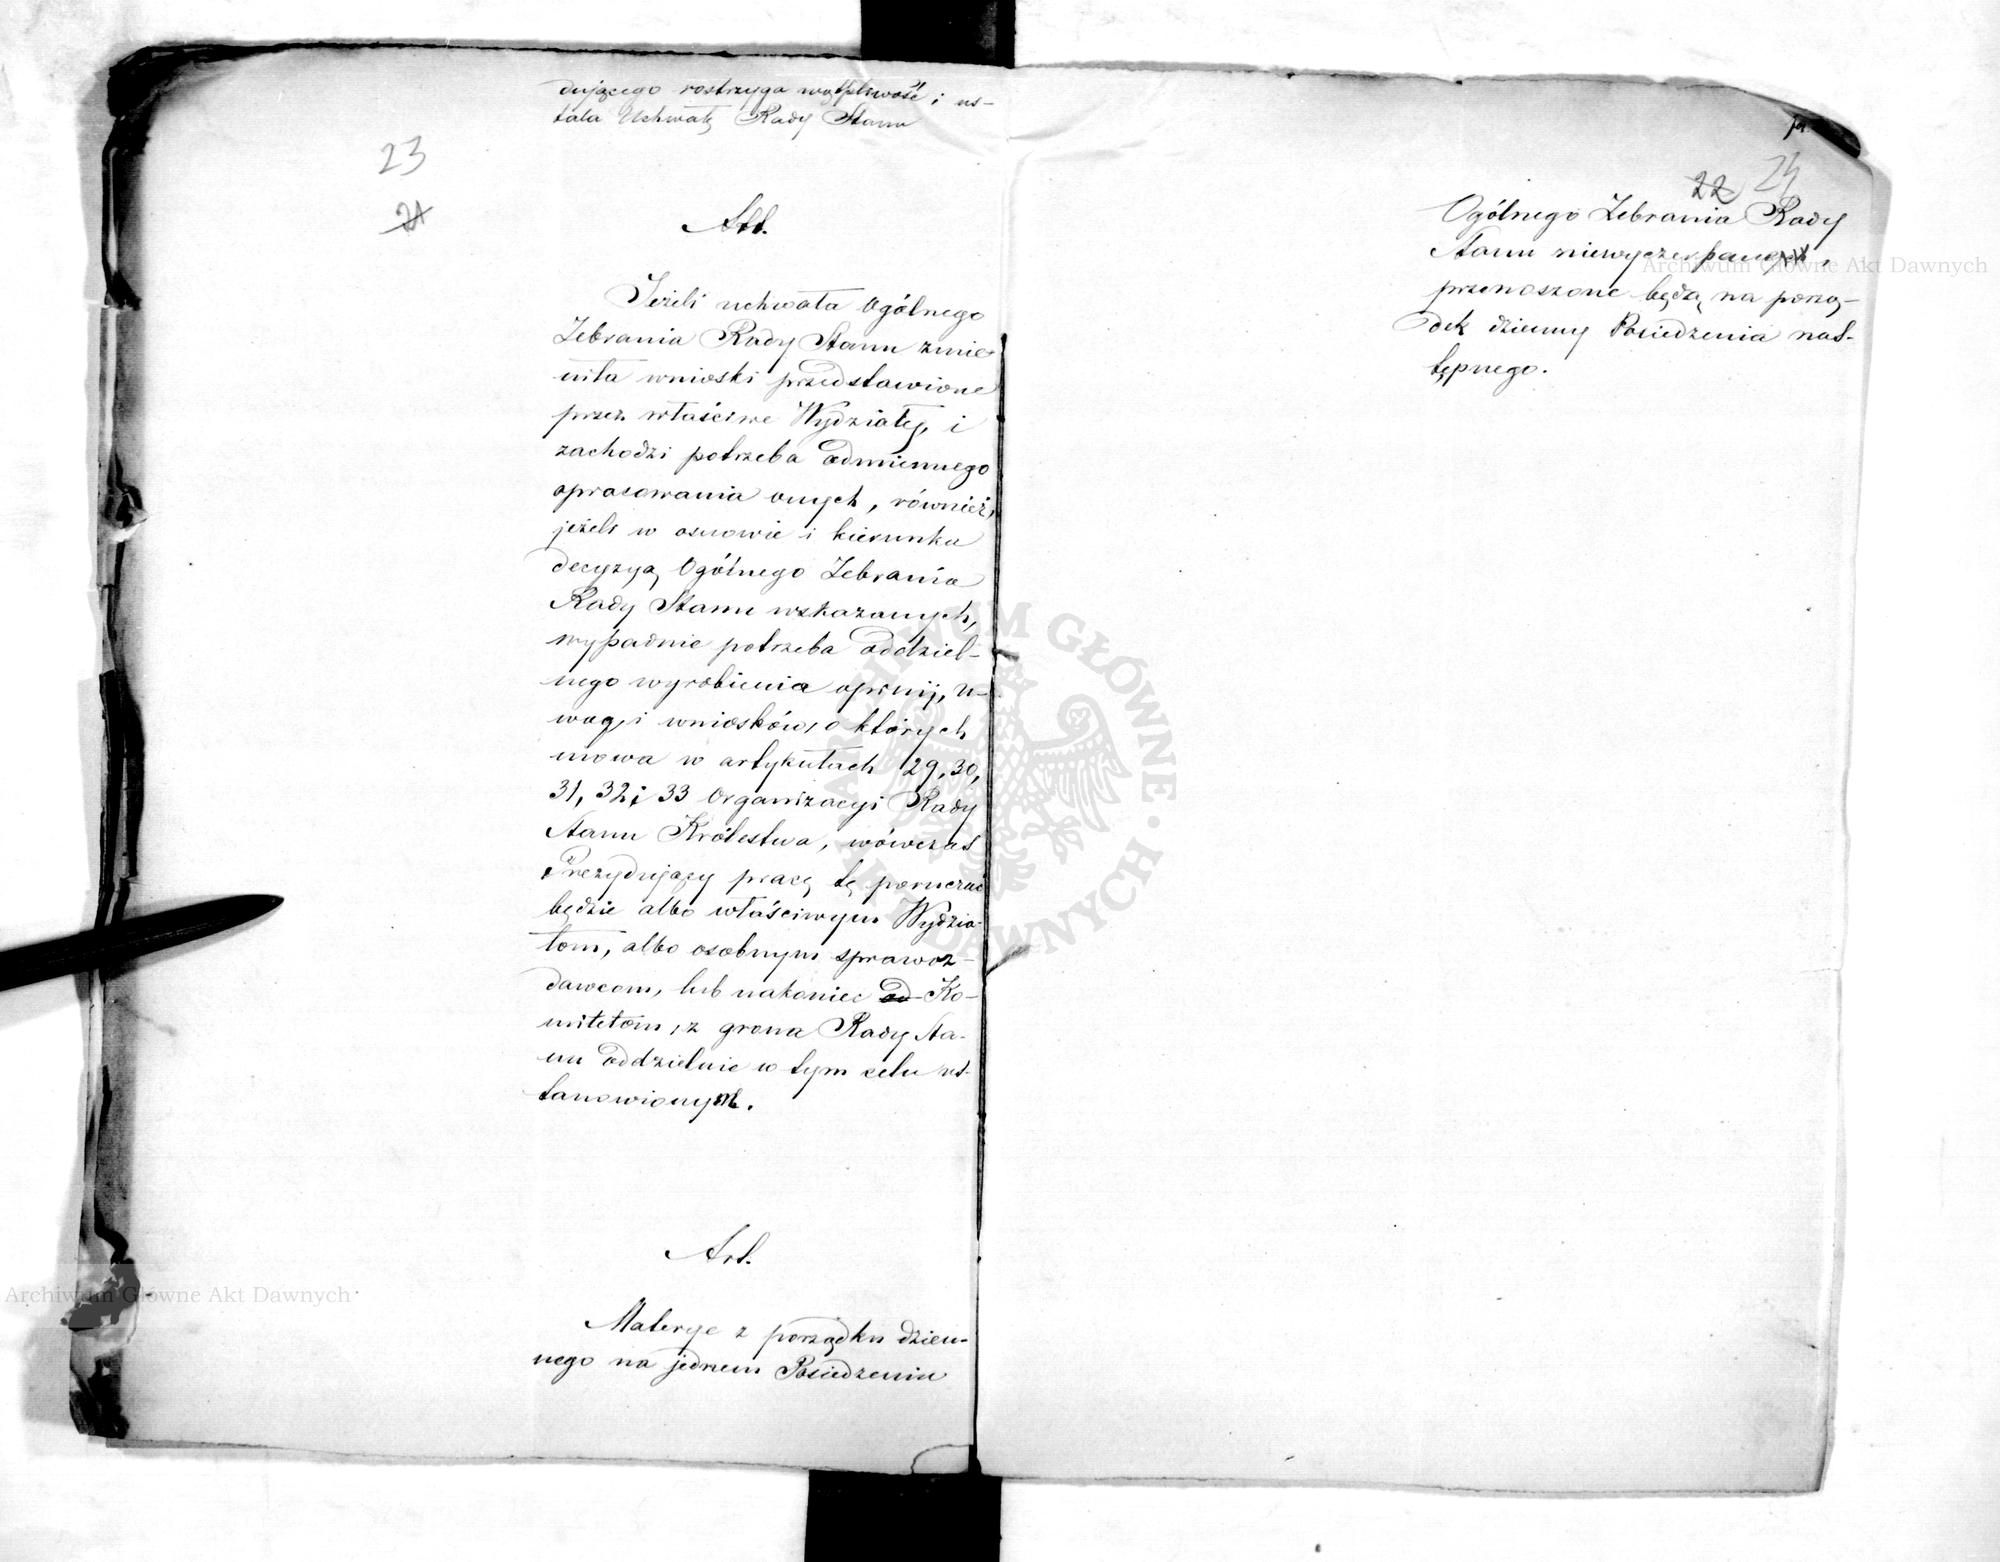 dującego rostrzyga wątpliwość i us-
tala Uchwałę Rady Stanu
23
21
Art.
Jeżeli uchwała Ogólnego
Zebrania Rady Stanu zmie-
niła wnioski przedstawione
przez właściwe Wydziały, i
zachodzi potrzeba odmiennego
opracowania onych, również,
jeżeli w osnowie i kierunku
decyzyą Ogólnego Zebrania
Rady Stanu wskazanych,
wypadnie potrzeba oddziel-
nego wyrobienia opinij, u-
wag, i wniosków, o których
mowa w artykułach 29, 30,
31, 32 i 33 Organizacyi Rady
Stanu Królestwa, wówczas
Prezydujący pracę tę poruczać
będzie albo właściwym Wydzia-
łom, albo osobnym sprawoz-
dawcom, lub nakoniec od Ko-
mitetom, z grona Rady Sta-
nu oddzielnie w tym celu us-
tanowionym.
Art.
Materye z porządku dzien-
nego na jednem Posiedzeniu
22 24
Ogólnego Zebrania Rady
Stanu niewyczerpane,
przenoszone będą na porzą-
dek dzienny Posiedzenia nas-
tępnego.
Archiwum Główne Akt Dawnych
Archiwum Główne Akt Dawnych
ARCHIWUM GŁÓWNE AKT DAWNYCH